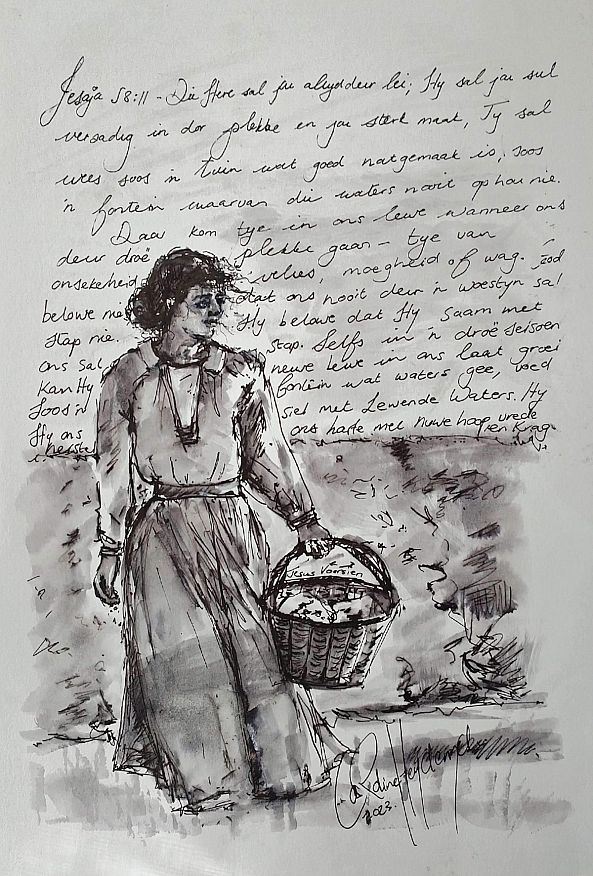 Jesaja 58:11 - Die Here sal jou altyd deur lei; Hy sal jou siel
versadig in dor plekke en jou sterk maak, Jy sal
wees soos 'n tuin wat goed natgemaak is, soos
'n fontein waarvan die waters nooit ophou nie.
Daar kom tye in ons lewe wanneer ons
deur droë plekke gaan - tye van
onsekerheid verlies, moegheid of wag. God
belowe nie dat ons nooit deur 'n woestyn sal
stap nie. Hy belowe dat Hy saam met
ons sal stap. Selfs in 'n droë seisoen
kan Hy nuwe lewe in ons laat groei
Soos 'n fontein wat waters gee, voed
Hy ons siel met Lewende Waters. Hy
herstel ons harte met nuwe hoop vrede
en Krag.
Jesus Voorsien
2023.